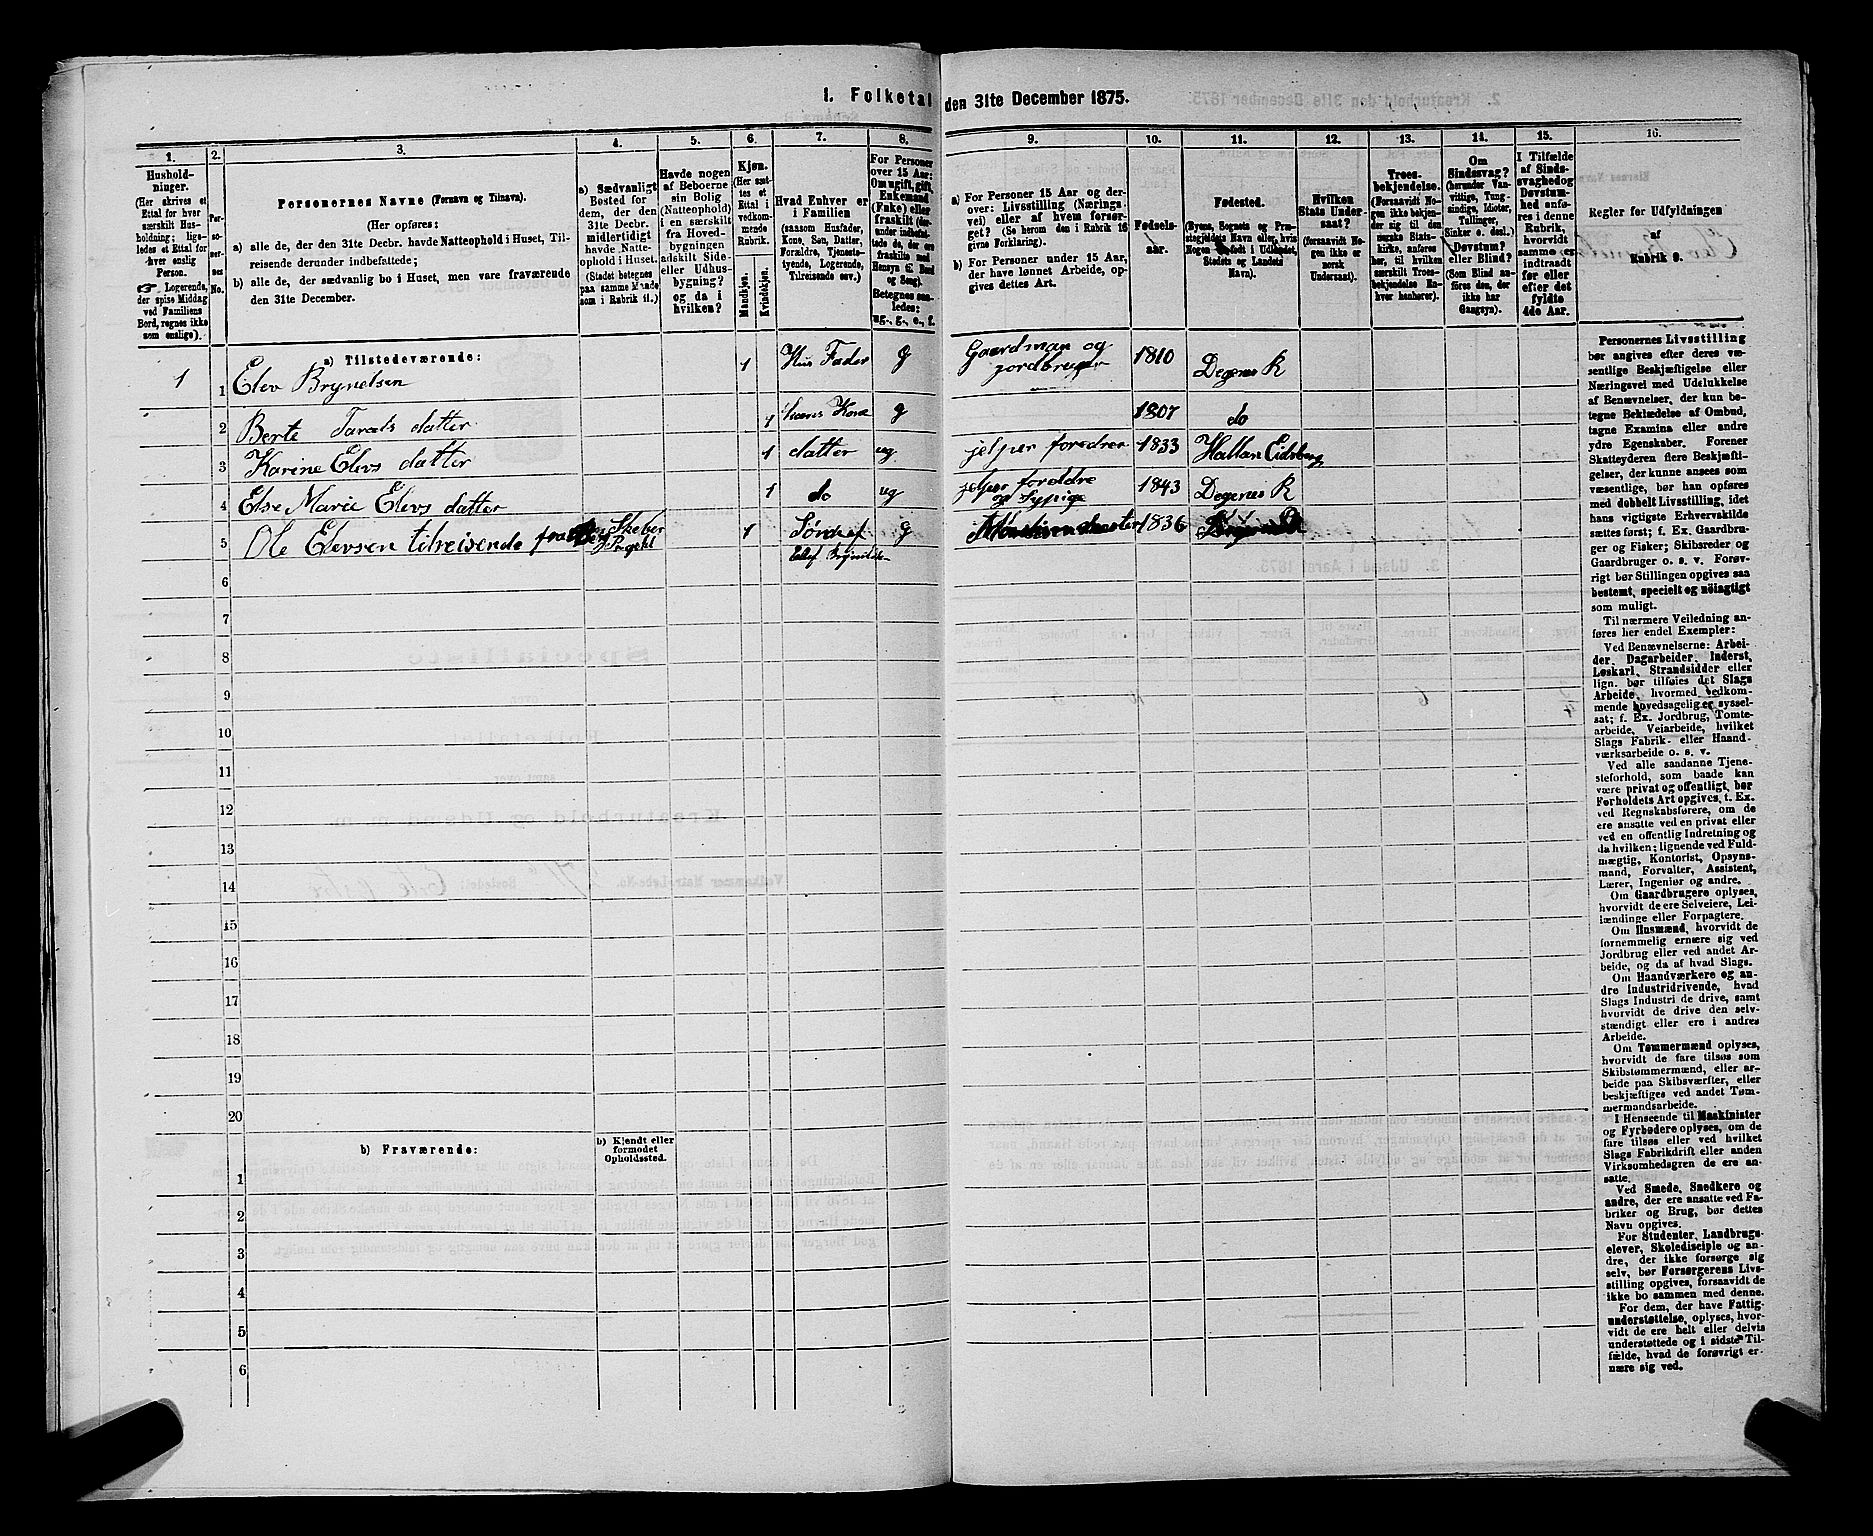 1. Folketal den 31te December 1875.
1.
2.
3.
4.
5.
6.
7.
8.
9.
10.
11.
12.
13.
14.
15.
16.
Hushold-
ninger.
(Her skrives et
Ettal for hver
særskilt Hus-
holdning; lige-
ledes et Ettal for
hver enslig
Person.
☞ Logerende,
der spise Middag
ved Familiens
Bord, regnes ikke
som enslige).
Per-
so-
ner-
nes
No.
Personernes Navne (Fornavn og Tilnavn).
(Her opføres:
a) alle de, der den 31te Decbr. havde Natteophold i Huset, Til-
reisende derunder indbefattede;
b) alle de, der sædvanlig bo i Huset, men vare fraværende
den 31te December.
a) Sædvanligt
Bosted for
dem, der den
31te Decbr.
midlertidigt
havde Natte-
ophold i Huset.
(Stedet betegnes
paa samme Maade
som i Rubrik 11.)
Havde nogen
af Beboerne
sin Bolig
(Natteophold)
i en særskilt
fra Hoved-
bygningen
adskilt Side-
eller Udhus-
bygning?
og da i
hvilken?
Kjøn.
(Her sæt-
tes et
Ettal i
vedkom-
mende
Rubrik.
Mandkjøn.
Kvindekjøn.
Hvad Enhver er
i Familien
(saasom Husfader,
Kone, Søn, Datter,
Forældre, Tjeneste-
tyende, Logerende,
Tilreisende osv.)
For Personer
over 15 Aar:
Om ugift, gift,
Enkemand
(Enke) eller
fraskilt
Betegnes saa-
ledes:
ug., g., e., f.
a) For Personer 15 Aar og der-
over: Livsstilling (Nærings-
vei) eller af hvem forsør-
get? (Se herom den i Rubrik 16
givne Forklaring).
b) For Personer under 15 Aar,
der have lønnet Arbeide, op-
gives dettes Art.
Fødsels-
aar.
Fødested.
(Byens, Sognets og Præ-
stegjeldets Navn eller, hvis
Nogen er født i Udlandet,
Stedets og Landets
Navn).
Hvilken
Stats Under-
saat?
(forsaavidt No-
gen ikke er
norsk
Undersaat).
Troes-
bekjendelse.
(Forsaavidt No-
gen ikke bekjen-
der sig til den
norske Stats-
kirke, anføres
her, til hvilken
særskilt Troes-
bekjendelse En-
hver henhører).
Om
Sindssvag?
(herunder Van-
vittige, Tung-
sindige, Idioter,
Tullinger,
Sinker o. desl.)
Døvstum?
eller Blind?
(Som Blind an-
føres den, der
ikke har
Gangsyn).
I Tilfælde
af Sinds-
svaghed og
Døvstum-
hed anfø-
res i denne
Rubrik,
hvorvidt
samme er
indtraadt
før eller
efter det
fyldte
4de Aar.
Regler for Udfyldningen
af
Rubrik 9.
a) Tilstedeværende:
1 1 Elev Brynelsen 1 Hus Fader g Gaardman og jordbruger 1810 Degenes R
2 Berte Tarals datter 1 hans Kone g 1807 do
3 Karine Elevs datter 1 datter ug jelper foredrer 1833 Hallan Eidsberg
4 Else Marie Elevs datter 1 do ug jelper foroldre og Sypige 1843 Degenes R
5 Ole Elevsen tilreisende fra 1 Sønd af Ellef g 1836
6
7
8
9
10
11
12
13
14
15
16
17
18
19
20
b) Fraværende:
b) Kjendt eller
formodet
Opholdssted.
1
2
3
4
5
6
Personernes Livsstilling
bør angives efter deres væ-
sentlige Beskjæftigelse eller
Næringsvei med Udelukkelse
af Benævnelser, der kun be-
tegne Beklædelse af Ombud,
tagne Examina eller andre
ydre Egenskaber. Forener
Skatteyderen flere Beskjæfti-
gelser, der kunne ansees som
væsentlige, bør han opføres
med dobbelt Livsstilling, idet
hans vigtigste Erhvervskilde
sættes først; f. Ex. Gaardbru-
ger og Fisker; Skibsreder og
Gaardbruger o. s. v. Forøv-
rigt bør Stillingen opgives saa
bestemt, specielt og nöiagtigt
som muligt.
Til nærmere Veiledning an-
føres her endel Exempler:
Ved Benævnelserne: Arbei-
der, Dagarbeider, Inderst,
Løskarl, Strandsidder eller
lign. bør tilføies det Slags
Arbeide, hvormed vedkom-
mende hovedsagelig er syssel-
sat; f. Ex. Jordbrug, Tomte-
arbeide, Veiarbeide, hvilket
Slags Fabrik- eller Haand-
værksarbeide o. s. v.
Ved alle saadanne Tjene-
steforhold, som baade kan
være privat og offentligt, bør
Forholdets Art opgives, t. Ex.
ved Regnskabsførere, om de
ere ansatte ved en privat eller
ved en offentlig Indretning og
da hvilken; lignende ved Fuld-
mægtig, Kontorist, Opsyns-
mand, Forvalter, Assistent,
Lærer, Ingeniør og andre.
Om Gaardbrugere oplyses,
hvorvidt de ere Selveiere, Lei-
lændinge eller Forpagtere.
Om Husmænd, hvorvidt de
fornemmelig ernære sig ved
Jordbrug eller ved andet Ar-
beide, og da af hvad Slags.
Om Haandværkere og an-
dre Industridrivende, hvad
Slags Industri de drive, samt
hvorvidt de drive den selv-
stændigt eller ere i andres
Arbeide.
Om Tømmermænd oplyses,
hvorvidt de fare tilsøs som
Skibstømmermænd, eller ar-
beide paa Skibsværfter, eller
beskjæftiges ved andet Tøm-
mermandsarbeide.
I Henseende til Maskinister
og Fyrbødere oplyses, om de
fare tilsøs eller ved hvilket
Slags Fabrikdrift eller anden
Virksomhedsgren de ere an-
satte.
Ved Smede, Snedkere og
andre, der ere ansatte ved Fa-
briker og Brug, bør dettes
Navn opgives.
For Studenter, Landbrugs-
elever, Skoledisciple og an-
dre, der ikke forsørge sig
selv, bør Forsørgerens Livs-
stilling opgives, forsaavidt de
ikke bo sammen med denne.
For dem, der have Fattig-
understøttelse, oplyses, hvor-
vidt de ere helt eller delvis
understøttede og i sidste Til-
fælde, hvad de forøvrigt er-
nære sig ved.